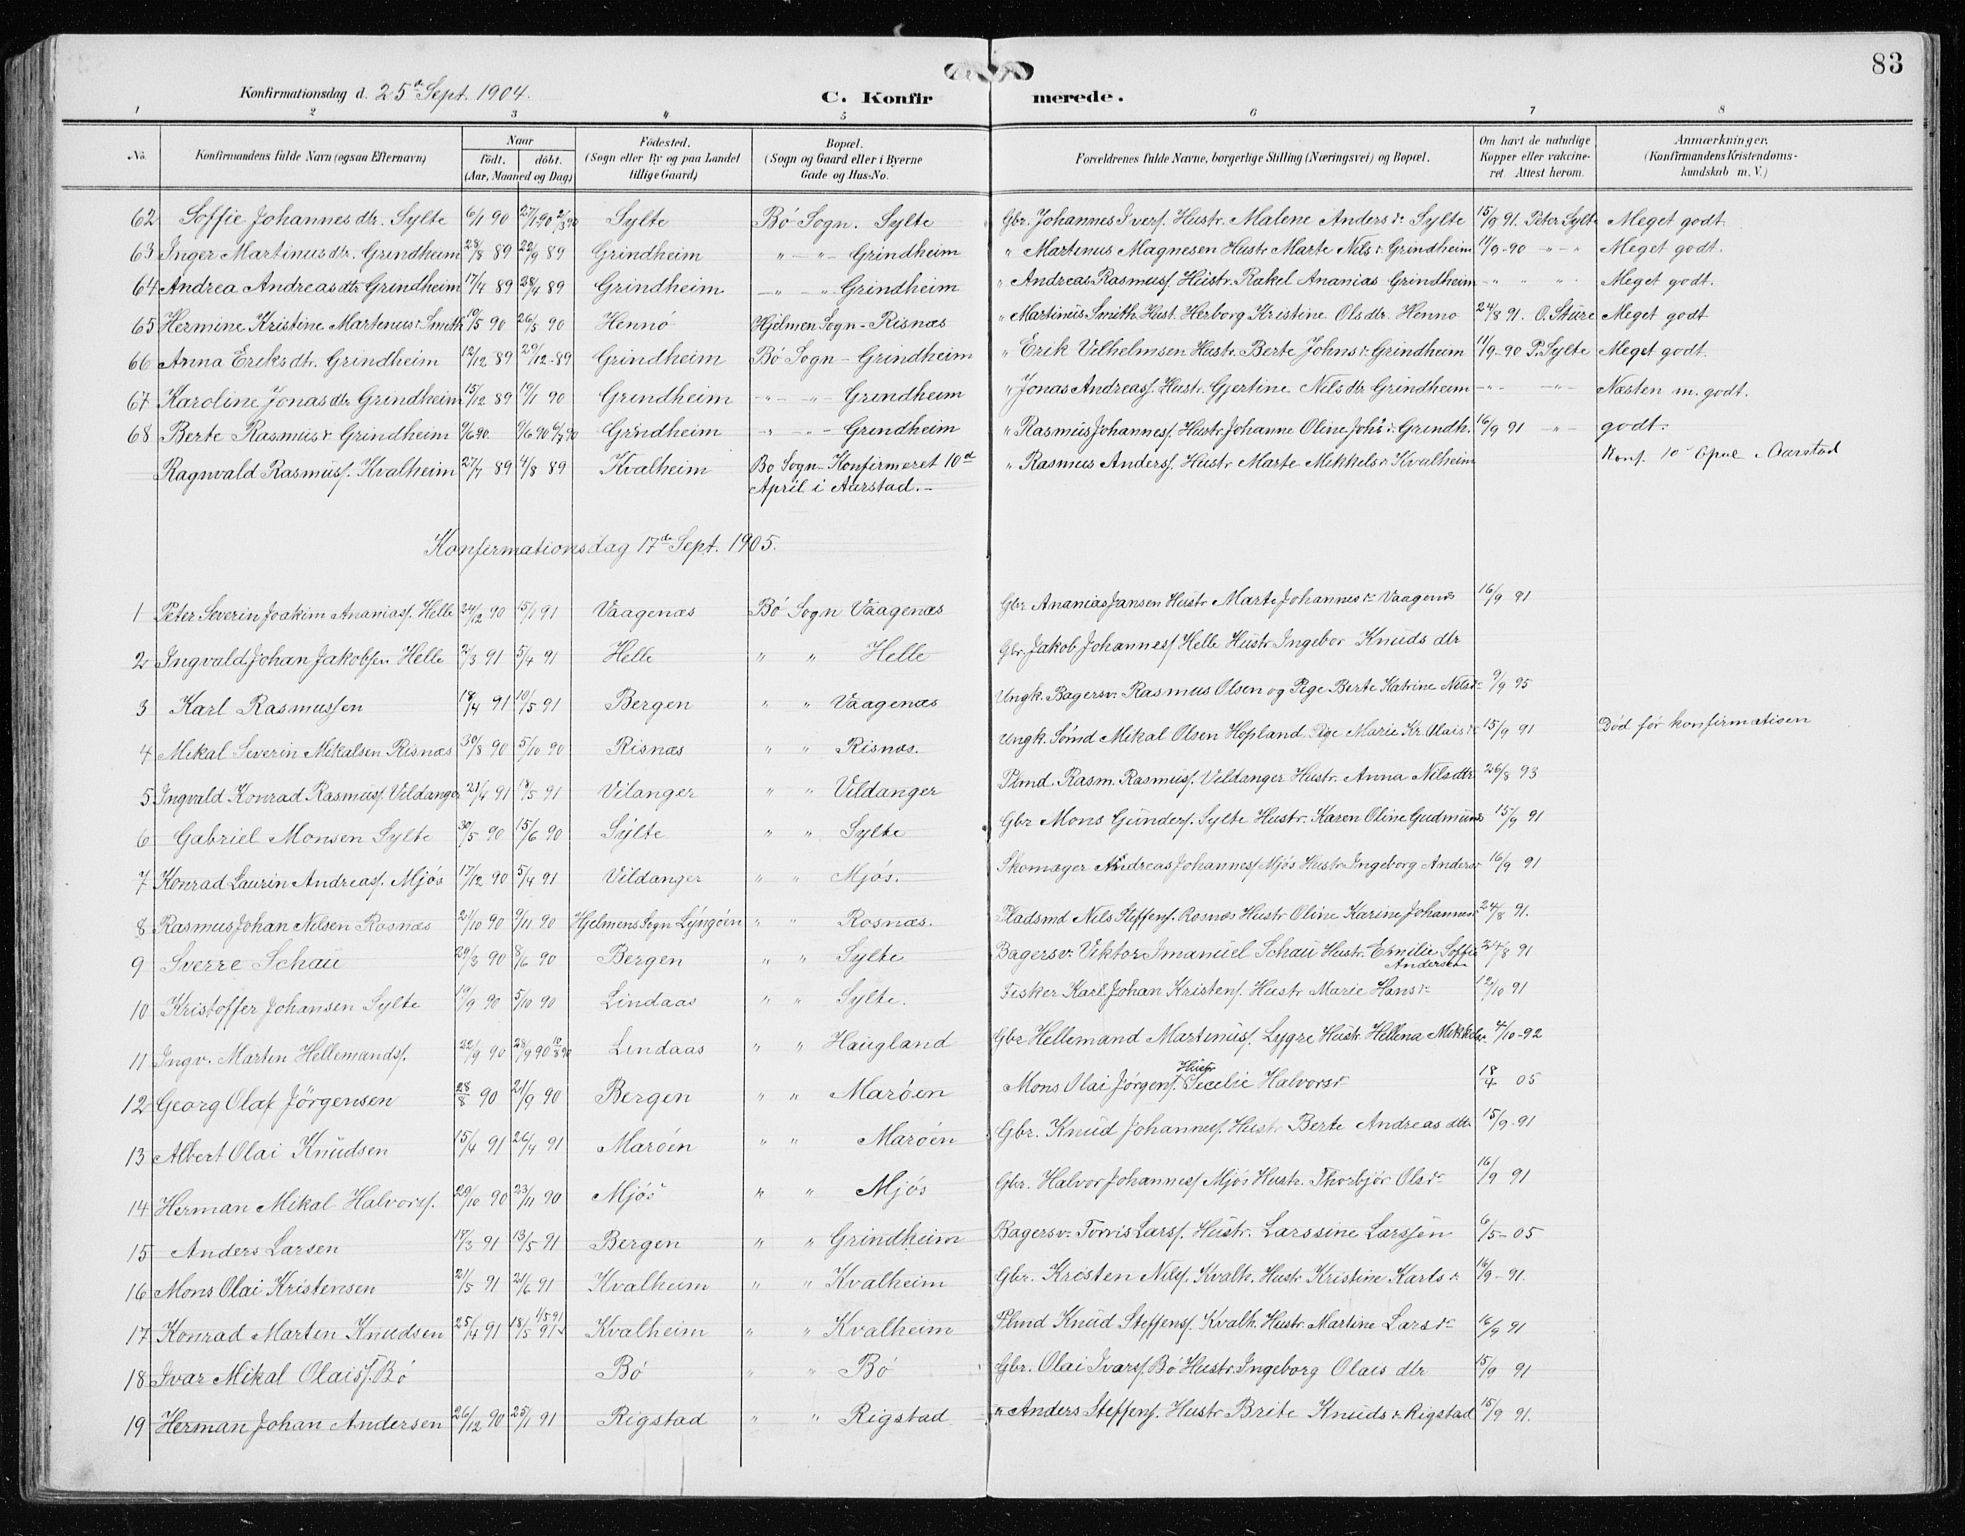 83
Konfirmationsdag d. 25de Sept. 1904. C. Konfirmerede.
1 2 3 4 5 6 7 8
No. Konfirmandens fulde Navn (ogsaa Efternavn) Naar födt. döbt. (Aar, Maaned og Dag) Födested. (Sogn eller By og paa Landet tillige Gaard) Bopæl. (Sogn og Gaard eller i Byerne Gade og Hus-No. Forældrenes fulde Navne, borgerlige Stilling (Næringsvei) og Bopæl. Om havt de naturlige Kopper eller vakcineret. Attest herom. Anmærkninger. (Konfirmandens Kristendomskundskab m. V.)
62 Soffie Johannesdtr. Sylte 6/1 90 Sylte Bö Sogn. Sylte Gbr. Johannes Ivers. Hustr. Malene Andersdr Sylte 15/9 91. Peter Sylte Meget godt.
63 Inger Martinusdtr. Grindheim 28/8 89 22/9 89 Grindheim " - " - Grindheim " Martinus Magnesen Hustr Marte Nilsdr Grindheim 11/9-90 " - " Meget godt.
64 Andrea Andreasdtr Grindheim 17/4 89 28/4 89 Grindheim " - " Grindheim " Andreas Rasmuss. Hustr. Rakel Ananias Grindheim " " " Meget godt.
65 Hermine Kristine Martinusdr Smith 10/5 90 26/5 90 Hennö Hjelmen Sogn - Risnæs " Martinus Smith. Hust. Herborg Kristine Olsdtr. Henno 24/8 91. O. Sture Meget godt
66 Anna Eriksdtr. Grindheim 12/12 89 29/12-89 Grindheim Bö Sogn - Grindheim " Erik Vilhelmsen Hustr. Berte Johnsdr Grindheim 11/9-90 P. Sylte Meget godt.
67 Karoline Jonasdtr Grindheim 15/12 89 19/1 90 Grindheim " - " Grindheim " Jonas Andreass. Hustr. Gjertine Nilsdtr Grindheim " - " Næsten m. godt.
68 Berte Rasmusdr Grindheim Grindheim " - " - Grindheim " Rasmus Johannes. Hustr Johanne Oline Johs.dr Grindh. 16/9 91 " godt.
Ragnvald Rasmuss. Kvalheim 27/7 89 4/8 89 Kvalheim Bö Sogn - Konfirmeret 10de April i Aarstad. - " Rasmus Anderss. Hustr Marte Mikkelsdr Kvalheim Konf. 10 i Aarstad
Konfirmationsdag 17de Sept. 1905.
1 Peter Severin Joakim Ananiass. Helle 24/12 90 15/1 91 Vaagenæs Bö Sogn Vaagenæs Gbr Ananias Jansen Hustr Marte Johannesdr Vaagenæs 16/9 91
2 Ingvald Johan Jakobsen Helle 2/3 91 5/4 91 Helle " " Helle Gbr. Jakob Johanness. Helle Hustr Ingebor Knudsdtr
3 Karl Rasmussen 18/4 91 10/5 91 Bergen " " Vaagenæs Ungk. Bagersv. Rasmus Olsen og Pige Berte Katrine Nilsdr 9/9 95
4 Mikal Severin Mikalsen Risnæs 30/8 90 5/10 90 Risnæs " " Risnæs. Ungk. Sömd Mikal Olsen Hopland. Pige Marie Kr. Olaisdr 15/9 91 Död för konfirmatisen
5 Ingvald Konrad Rasmuss. Vildanger 23/4 91 18/5 91 Vilanger " " Vildanger Plmd. Rasm. Rasmuss. Vildanger Hustr. Anna Nilsdtr. 26/8 93
6 Gabriel Monsen Sylte 30/5 90 15/6 90 Sylte " " Sylte Gbr Mons Gunders. Sylte Hustr. Karen Oline Gudmunds 15/9 91
7 Konrad Laurin Andreass. Mjös 17/12 90 5/4 91 Vildanger " " Mjös. Skomager Andreas Johanness Mjös Hustr Ingeborg Andersdr 16/9 91
8 Rasmus Johan Nilsen Rosnæs 21/10 90 9/11 90 Hjelmens Sogn Lyngöen " " Rosnæs. Pladsmd Nils Steffens. Rosnæs Hustr Oline Karine Johannesdr 24/8 91.
9 Sverre Schau 29/3 90 8/6 90 Bergen " " Sylte Bagersv. Viktor Imanuel Schau Hustr. Emilie Soffie Andersen 24/8 91
10 Kristoffer Johansen Sylte 19/9 90 5/10 90 Lindaas " " Sylte. Fisker Karl Johan Kristens. Hustr Marie Hansdr 12/10 91
11 Ingv. Martin Hellemands. 22/9 90 28/9 90 Lindaas " " Haugland Gbr Hellemand Martinuss. Lygre Hustr. Hellena Mikkelsdr 4/10-92
12 Georg Olaf Jörgensen 28/8 90 21/9 90 Bergen " " Maröen Mons Olai Jörgens. Hustr Secelie Halvorsdr 18/4 05
13 Albert Olai Knudsen 15/4 91 26/4 91 Maröen " " Maröen Gbr. Knud Johanness. Hustr Berte Andreasdtr 15/9-91
14 Herman Mikal Halvors. 29/10 90 23/11 90 Mjös " " Mjös Gbr. Halvor Johanness Mjös Hustr. Thorbjör Olsdr 16/9 91
15 Anders Larsen 17/3 91 13/5 91 Bergen " " Grindheim Bagersv. Torris Lars. Hustr. Larssine Larssen 6/5-05
16 Mons Olai Kristensen 21/5 91 21/6 91 Kvalheim " " Kvalheim Gbr. Kristen Nils. Kvalh. Hustr Kristine Karlsdr 16/9-91.
17 Konrad Marten Knudsen 25/4 91 18/5 91 1/5 91 Kvalheim " " Kvalheim Plmd Knud Steffens. Kvalh. Hustr. Martine Larsdr 16/9 91
18 Ivar Mikal Olais. Bö Bö " " Bö Gbr. Olai Ivars. Bö Hustr. Ingeborg Olaisdtr 15/9 91
19 Herman Johan Andersen 26/12 90 25/1 91 Rigstad " " Rigstad " Anders Steffens. Hustr Brite Knudsdr Rigstad 15/9 91.